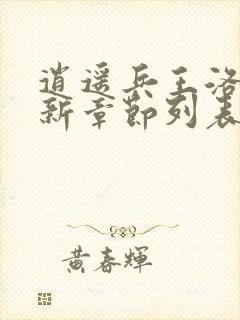 逍遥兵王洛
新章節列表
黄春輝